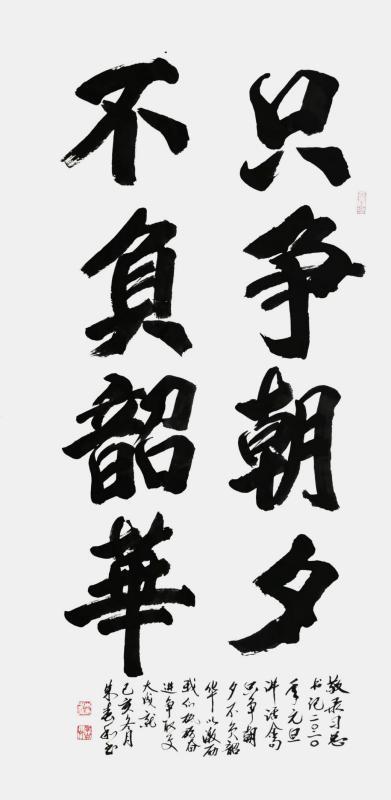 只争朝夕
不負韶華
敬录习总
书记二〇二〇
年元旦
讲话金句
只争朝
夕不负韶
华以激励
我们奋
进争取更
大成就
己亥冬月
书